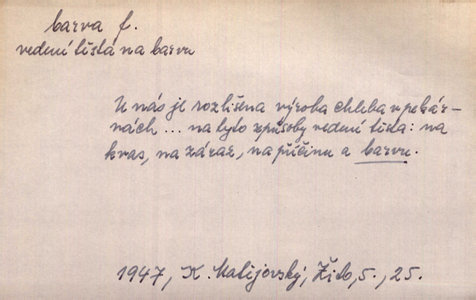 barva f.
vedení těsta na barvu
U nás je rozlišena výroba chleba v peká-
nách ... na tyto způsoby vedení těsta: na
kvas, na záraz, na příčinu a barvu.
1947, K. Matijovský, Žito, 5., 25.